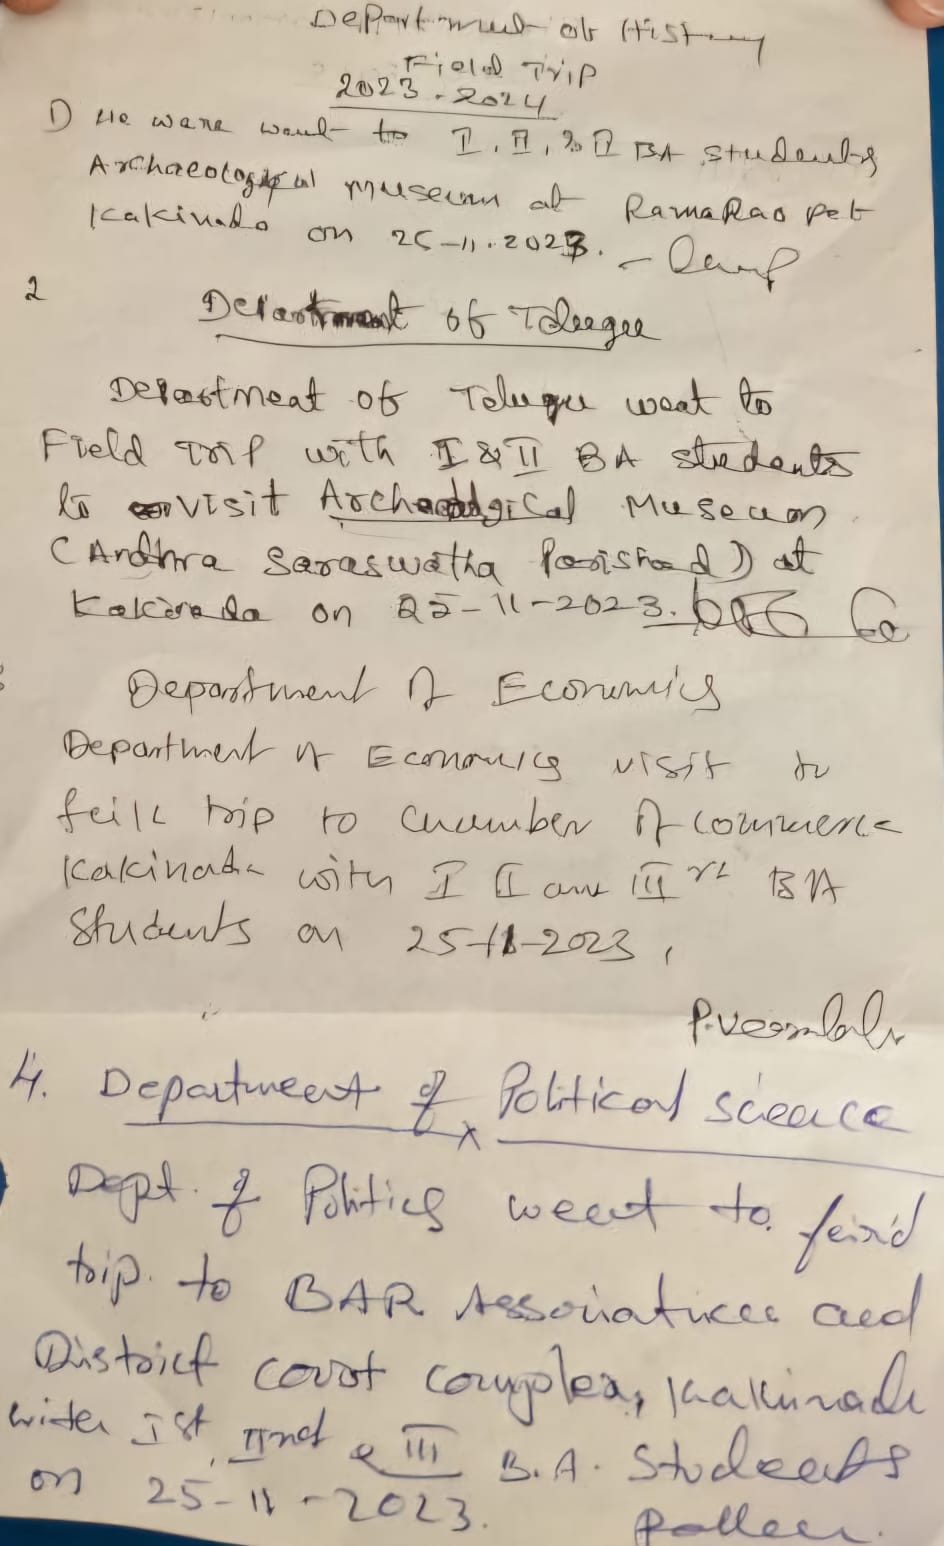 Department of History
Field Trip
2023-2024
1) We ware want to I, II, & III BA students
Archaeological museum at RamaRao pet
Kakinada on 25-11-2023.
2
Department of Telugu
Department of Telugu went to
Field Trip with I & II BA students
to visit Archeological Museum
(Andhra Saraswatha Parishad) at
Kakinada on 25-11-2023.
Department of Economics
Department of Economics visit to
feild trip to Chamber of commerce
Kakinada with I II and III rd BA
Students on 25-11-2023,
4. Department of Political science
Dept. of Politics went to feild
trip to BAR Associations and
District court complex, Kakinada
with Ist, IInd & III B.A. Students
on 25-11-2023.